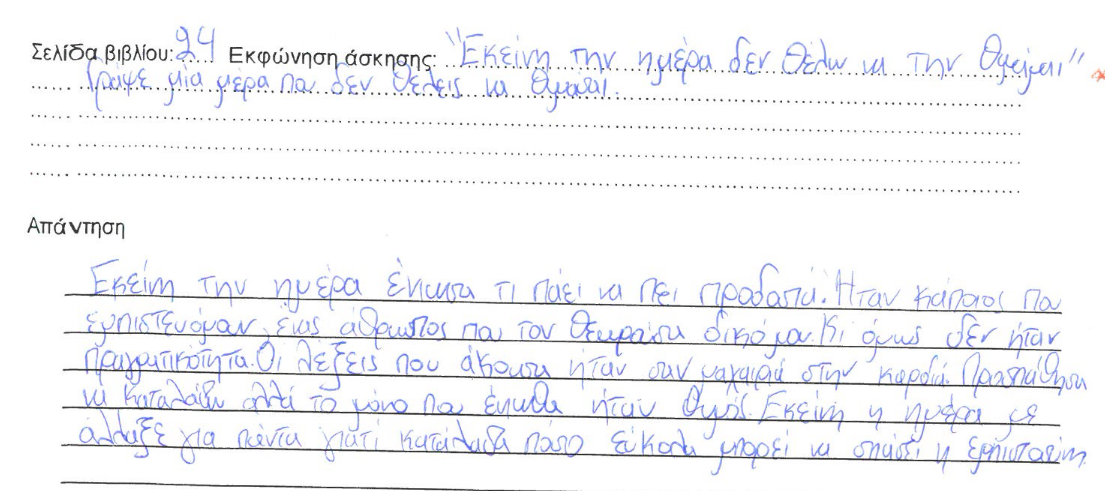 Σελίδα βιβλίου: 94 Εκφώνηση άσκησης: "Εκείνη την ημέρα δεν θέλω να την θυμάμαι"
Γράψε μία μέρα που δεν θέλεις να θυμάσαι.
Απάντηση
Εκείνη την ημέρα ένιωσα τι πάει να πει προδοσία. Ήταν κάποιος που
εμπιστευόμουν, ένας άθρωπος που τον θεωρούσα δικό μου. Κι όμως δεν ήταν
πραγματικότητα. Οι λέξεις που άκουσα ήταν σαν μαχαιριά στην καρδιά. Προσπάθησα
να καταλάβω αλλά το μόνο που ένιωθα ήταν θυμός. Εκείνη η ημέρα με
άλλαξε για πάντα γιατί κατάλαβα πόσο εύκολα μπορεί να σπάσει η εμπιστοσύνη